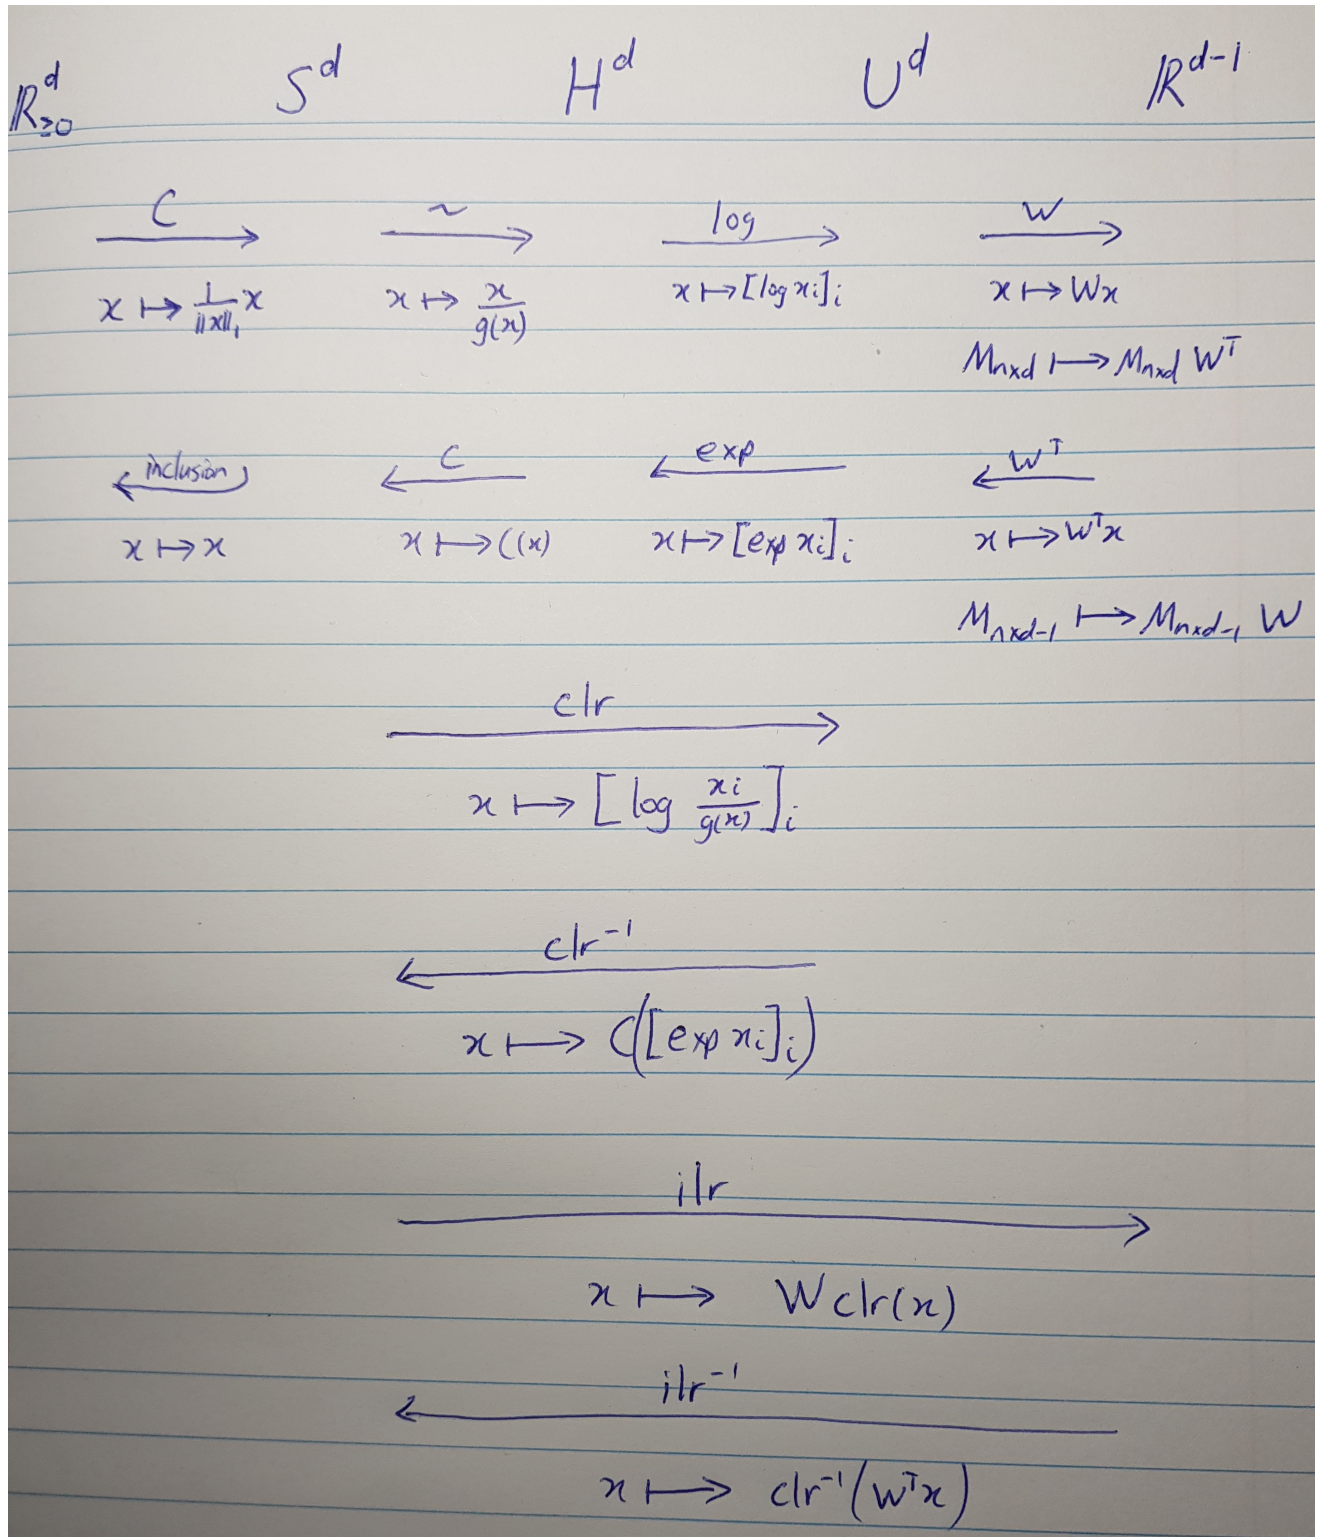 ℝ^d_≥0 S^d H^d U^d ℝ^{d-1}
C ~ log W
x ↦ 1/‖x‖₁ x x ↦ x/g(x) x ↦ [log x_i]_i x ↦ Wx
M_{n×d} ↦ M_{n×d} W^T
inclusion C exp W^T
x ↦ x x ↦ C(x) x ↦ [exp x_i]_i x ↦ W^T x
M_{n×d-1} ↦ M_{n×d-1} W
clr
x ↦ [log x_i/g(x)]_i
clr^{-1}
x ↦ C([exp x_i]_i)
ilr
x ↦ W clr(x)
ilr^{-1}
x ↦ clr^{-1}(W^T x)